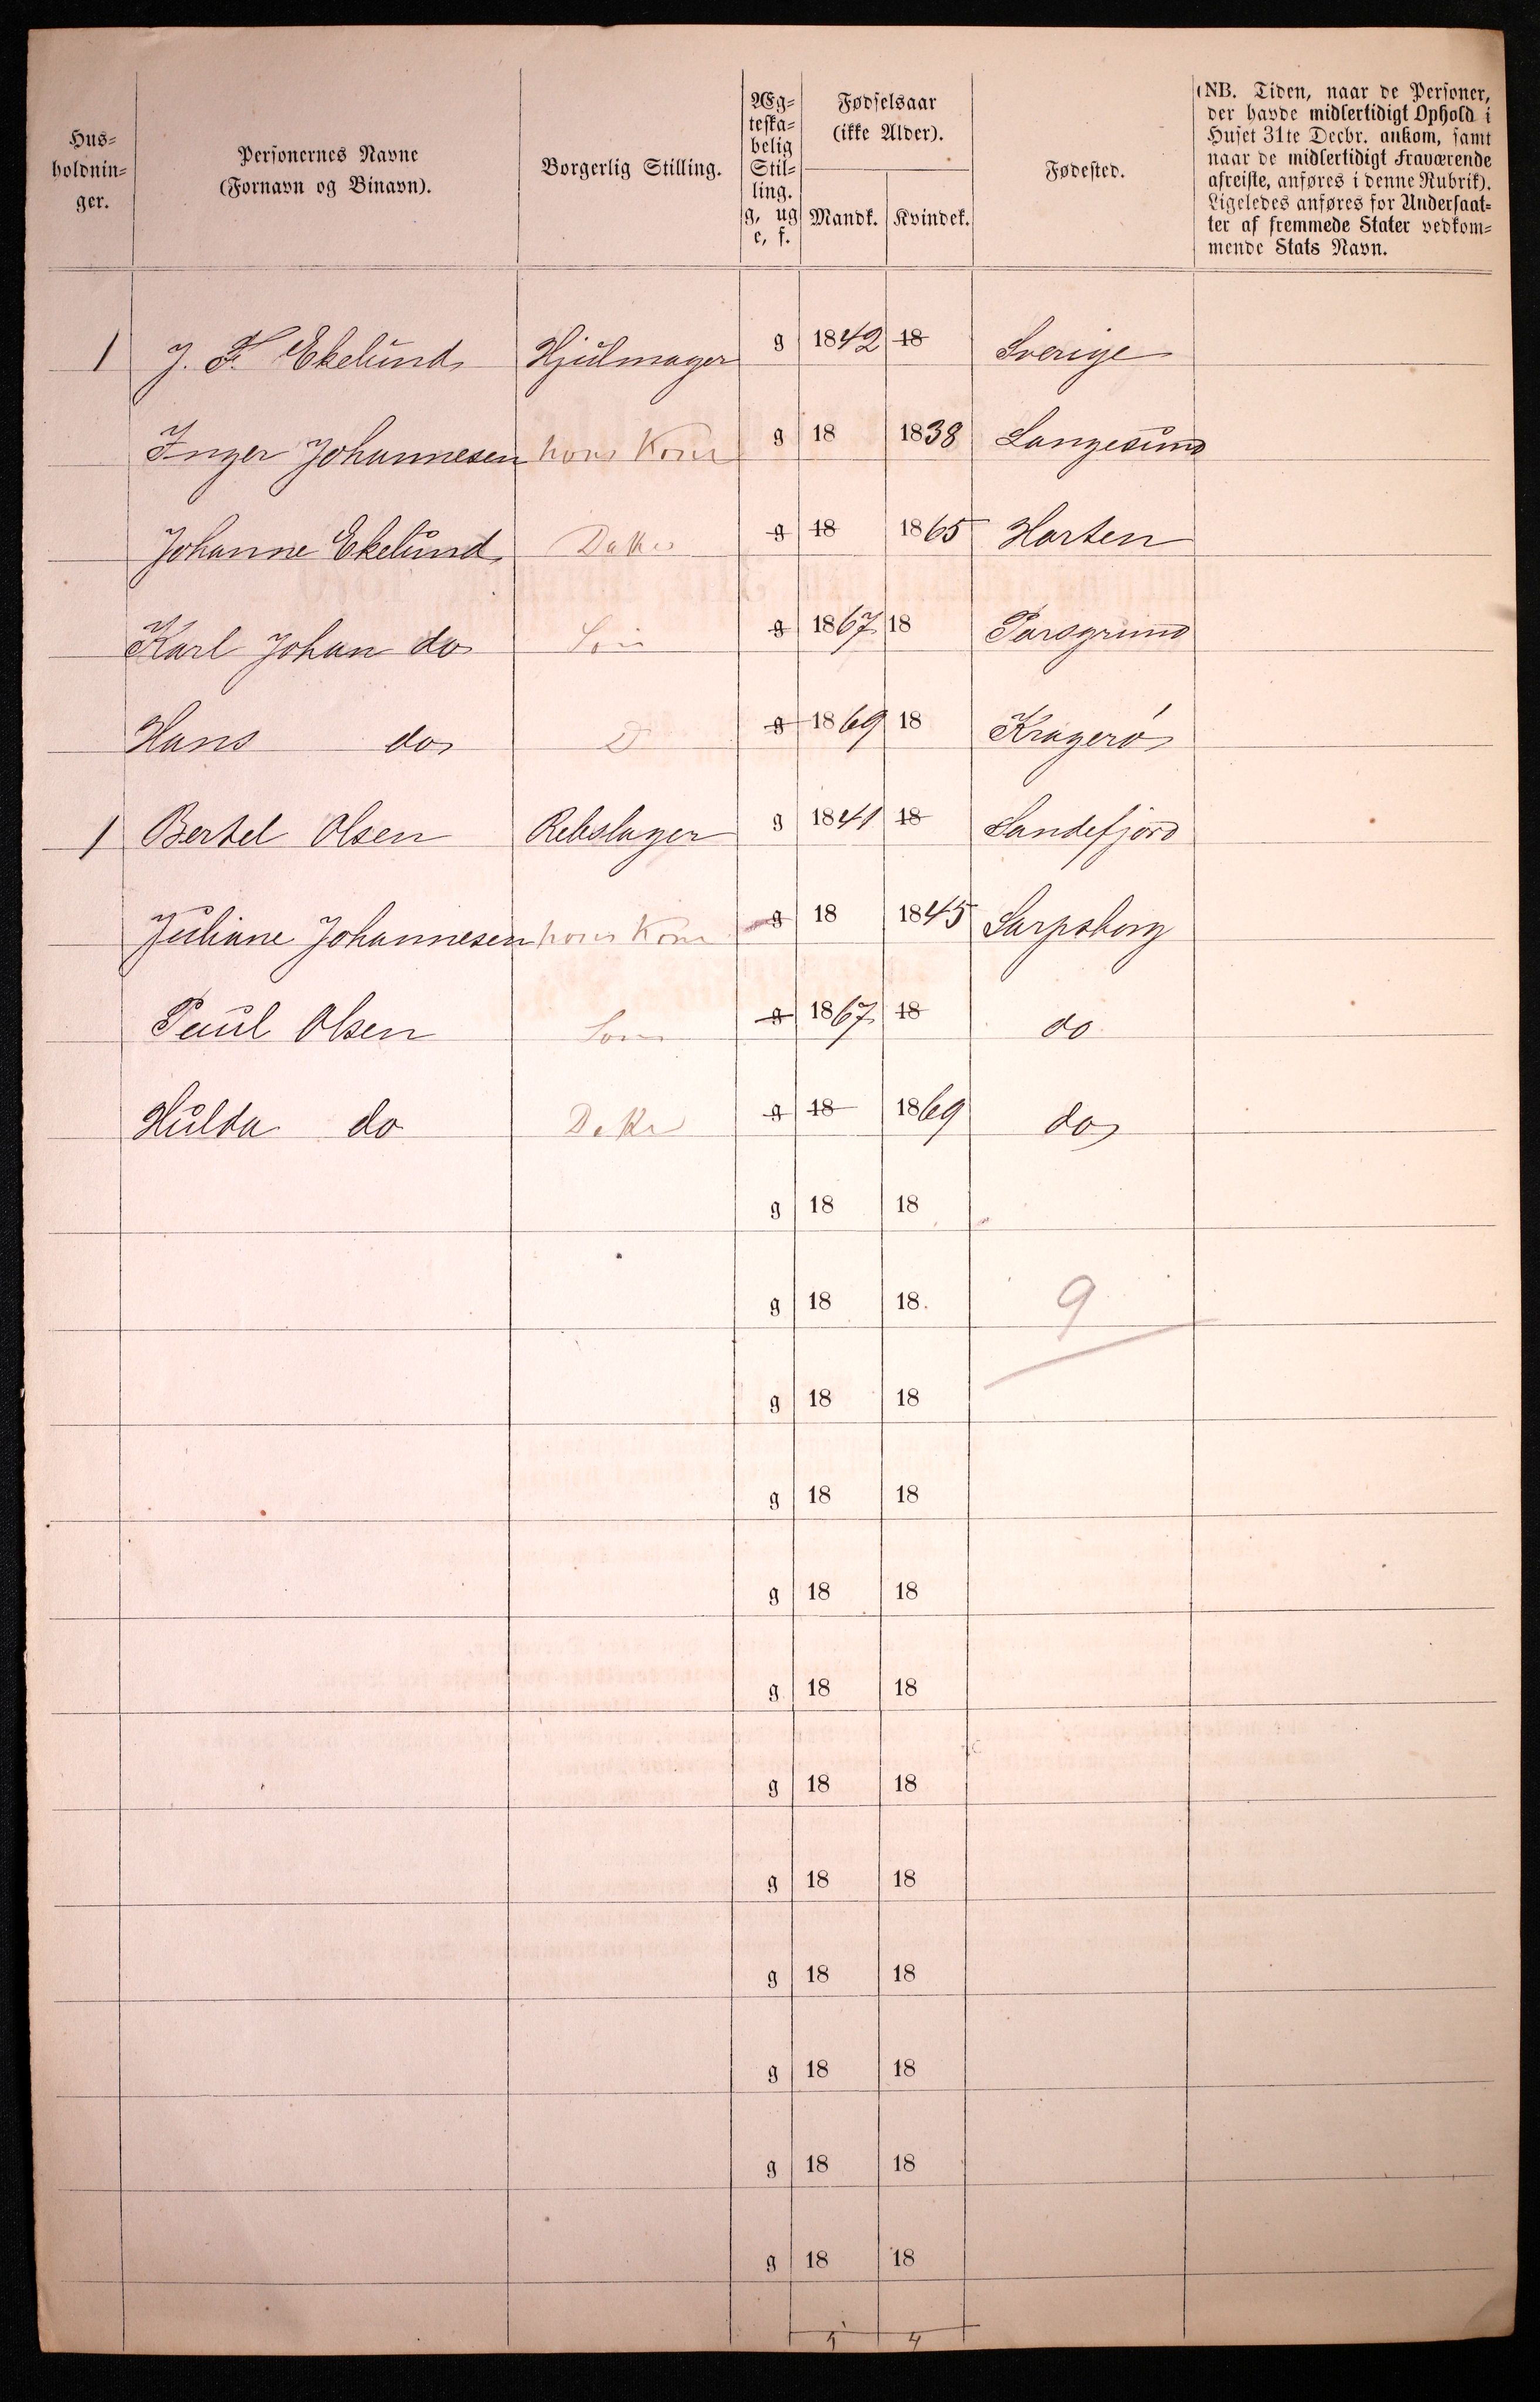 Hus-
holdnin-
ger.
Personernes Navne
(Fornavn og Binavn).
Borgerlig Stilling.
Æg-
teska-
belig
Stil-
ling.
g, ug
e, f.
Fødselsaar
(ikke Alder).
Mandk. Kvindek.
Fødested.
(NB. Tiden, naar de Personer,
der havde midlertidigt Ophold i
Huset 31te Decbr. ankom, samt
naar de midlertidigt Fraværende
afreiste, anføres i denne Rubrik).
Ligeledes anføres for Undersaat-
ter af fremmede Stater vedkom-
mende Stats Navn.
1 J. F. Ekelund Hjulmager g 1842 18 Sverige
Inger Johannesen hans Kone g 18 1838 Langesund
Johanne Ekelund Datter g 18 1865 Horten
Karl Johan do Søn g 1867 18 Porsgrund
Hans do D g 1869 18 Kragerø
1 Bertel Olsen Rebslager g 1841 18 Sandefjord
Juliane Johannesen hans Kone g 18 1845 Sarpsborg
Paul Olsen Søn g 1867 18 do
Hulda do Datter g 18 1869 do
g 18 18
g 18 18. 9
g 18 18
g 18 18
g 18 18
g 18 18
g 18 18
g 18 18
g 18 18
g 18 18
g 18 18
g 18 18
5 4